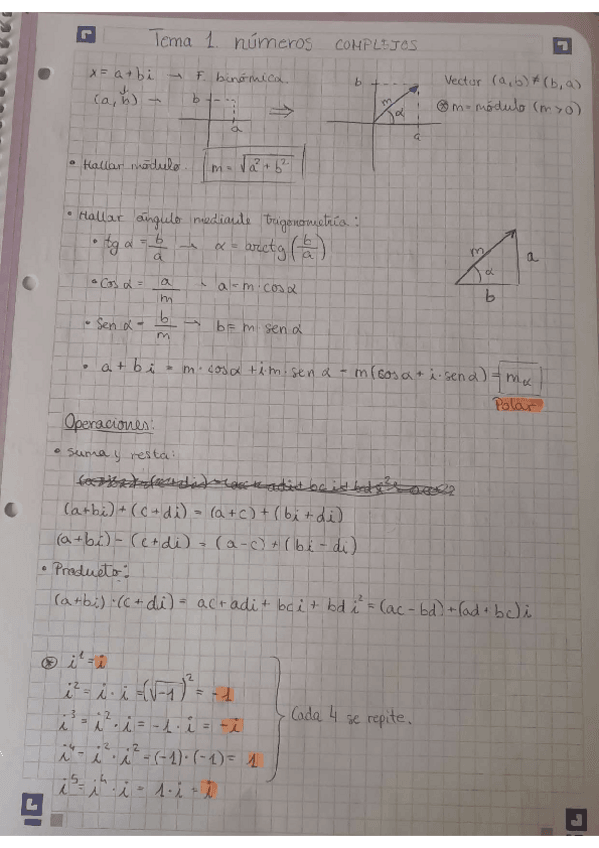 Tema 1. números COMPLEJOS
x = a+bi → F. binómica.
(a, b) →
b
a
⇒
b
m
α
a
Vector (a,b) ≠ (b,a)
⊛ m = módulo (m>0)
• Hallar módulo. m = √a²+b²
• Hallar ángulo mediante trigonometría:
• tg α = b/a → α = arctg(b/a)
• Cos α = a/m → a = m·cosα
• Sen α = b/m → b = m sen α
m
α
a
b
• a + bi = m·cosα + i m·sen α = m(cosα + i·senα) = mα
Polar
Operaciones:
• Suma y resta:
(a+bi)+(c+di) = (a+c)+(bi+di)
(a+bi)-(c+di) = (a-c)+(bi-di)
• Producto:
(a+bi)·(c+di) = ac+adi+bci+bdi² = (ac-bd)+(ad+bc)i
⊛ i¹ = i
i² = i·i = (√-1)² = -1
i³ = i²·i = -1·i = -i
i⁴ = i²·i² = (-1)·(-1) = 1
i⁵ = i⁴·i = 1·i = i
Cada 4 se repite.